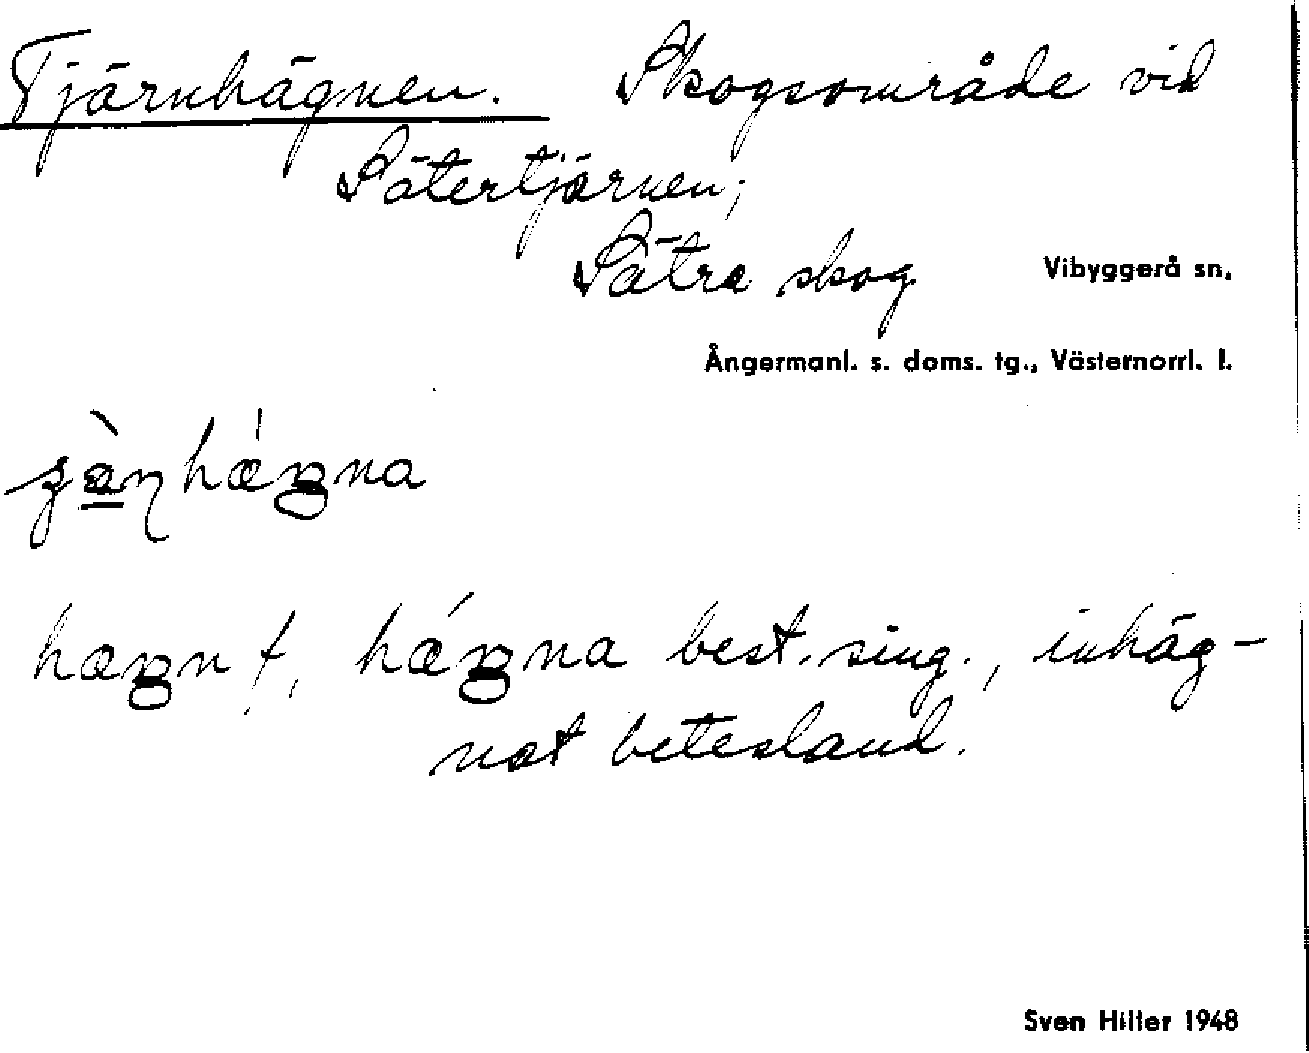 Tjärnhägnen. Skogsområde vid
Sätertjärnen;
Sätra skog Vibyggerå sn.
Ångermanl. s. doms. tg., Västernorrl. l.
best. sing., inhäg-
nat betesland.
Sven Hiller 1948